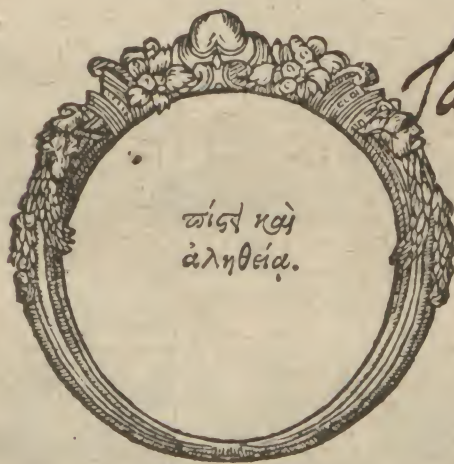 πίςει καὶ
ἀληθείᾳ.